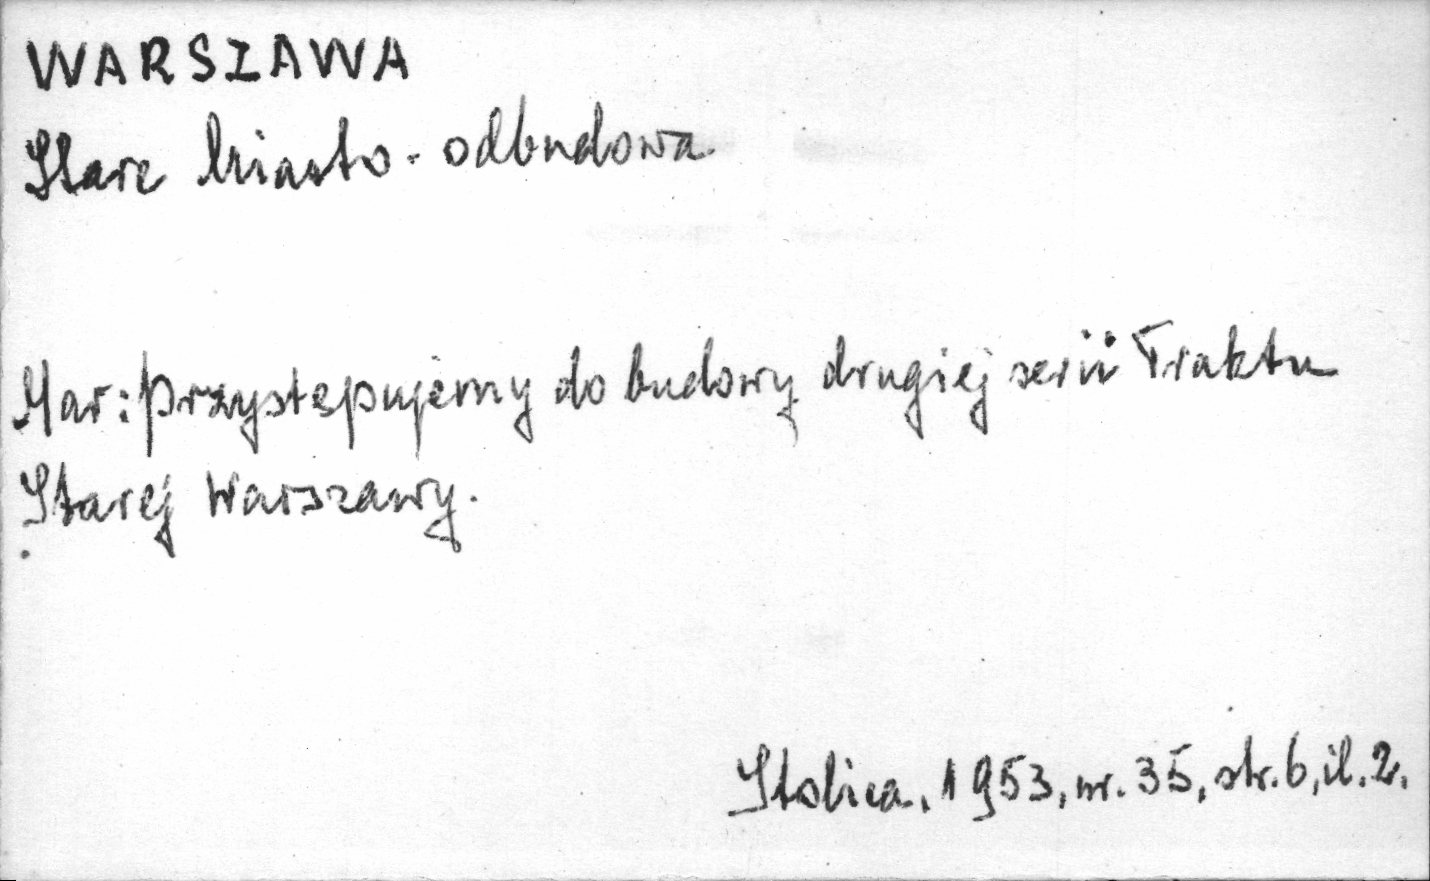 WARSZAWA
Stare Miasto - odbudowa
Mar: przystępujemy do budowy drugiej serii Traktu
Starej Warszawy.
Stolica, 1953, nr. 35, str. 6, il. 2.